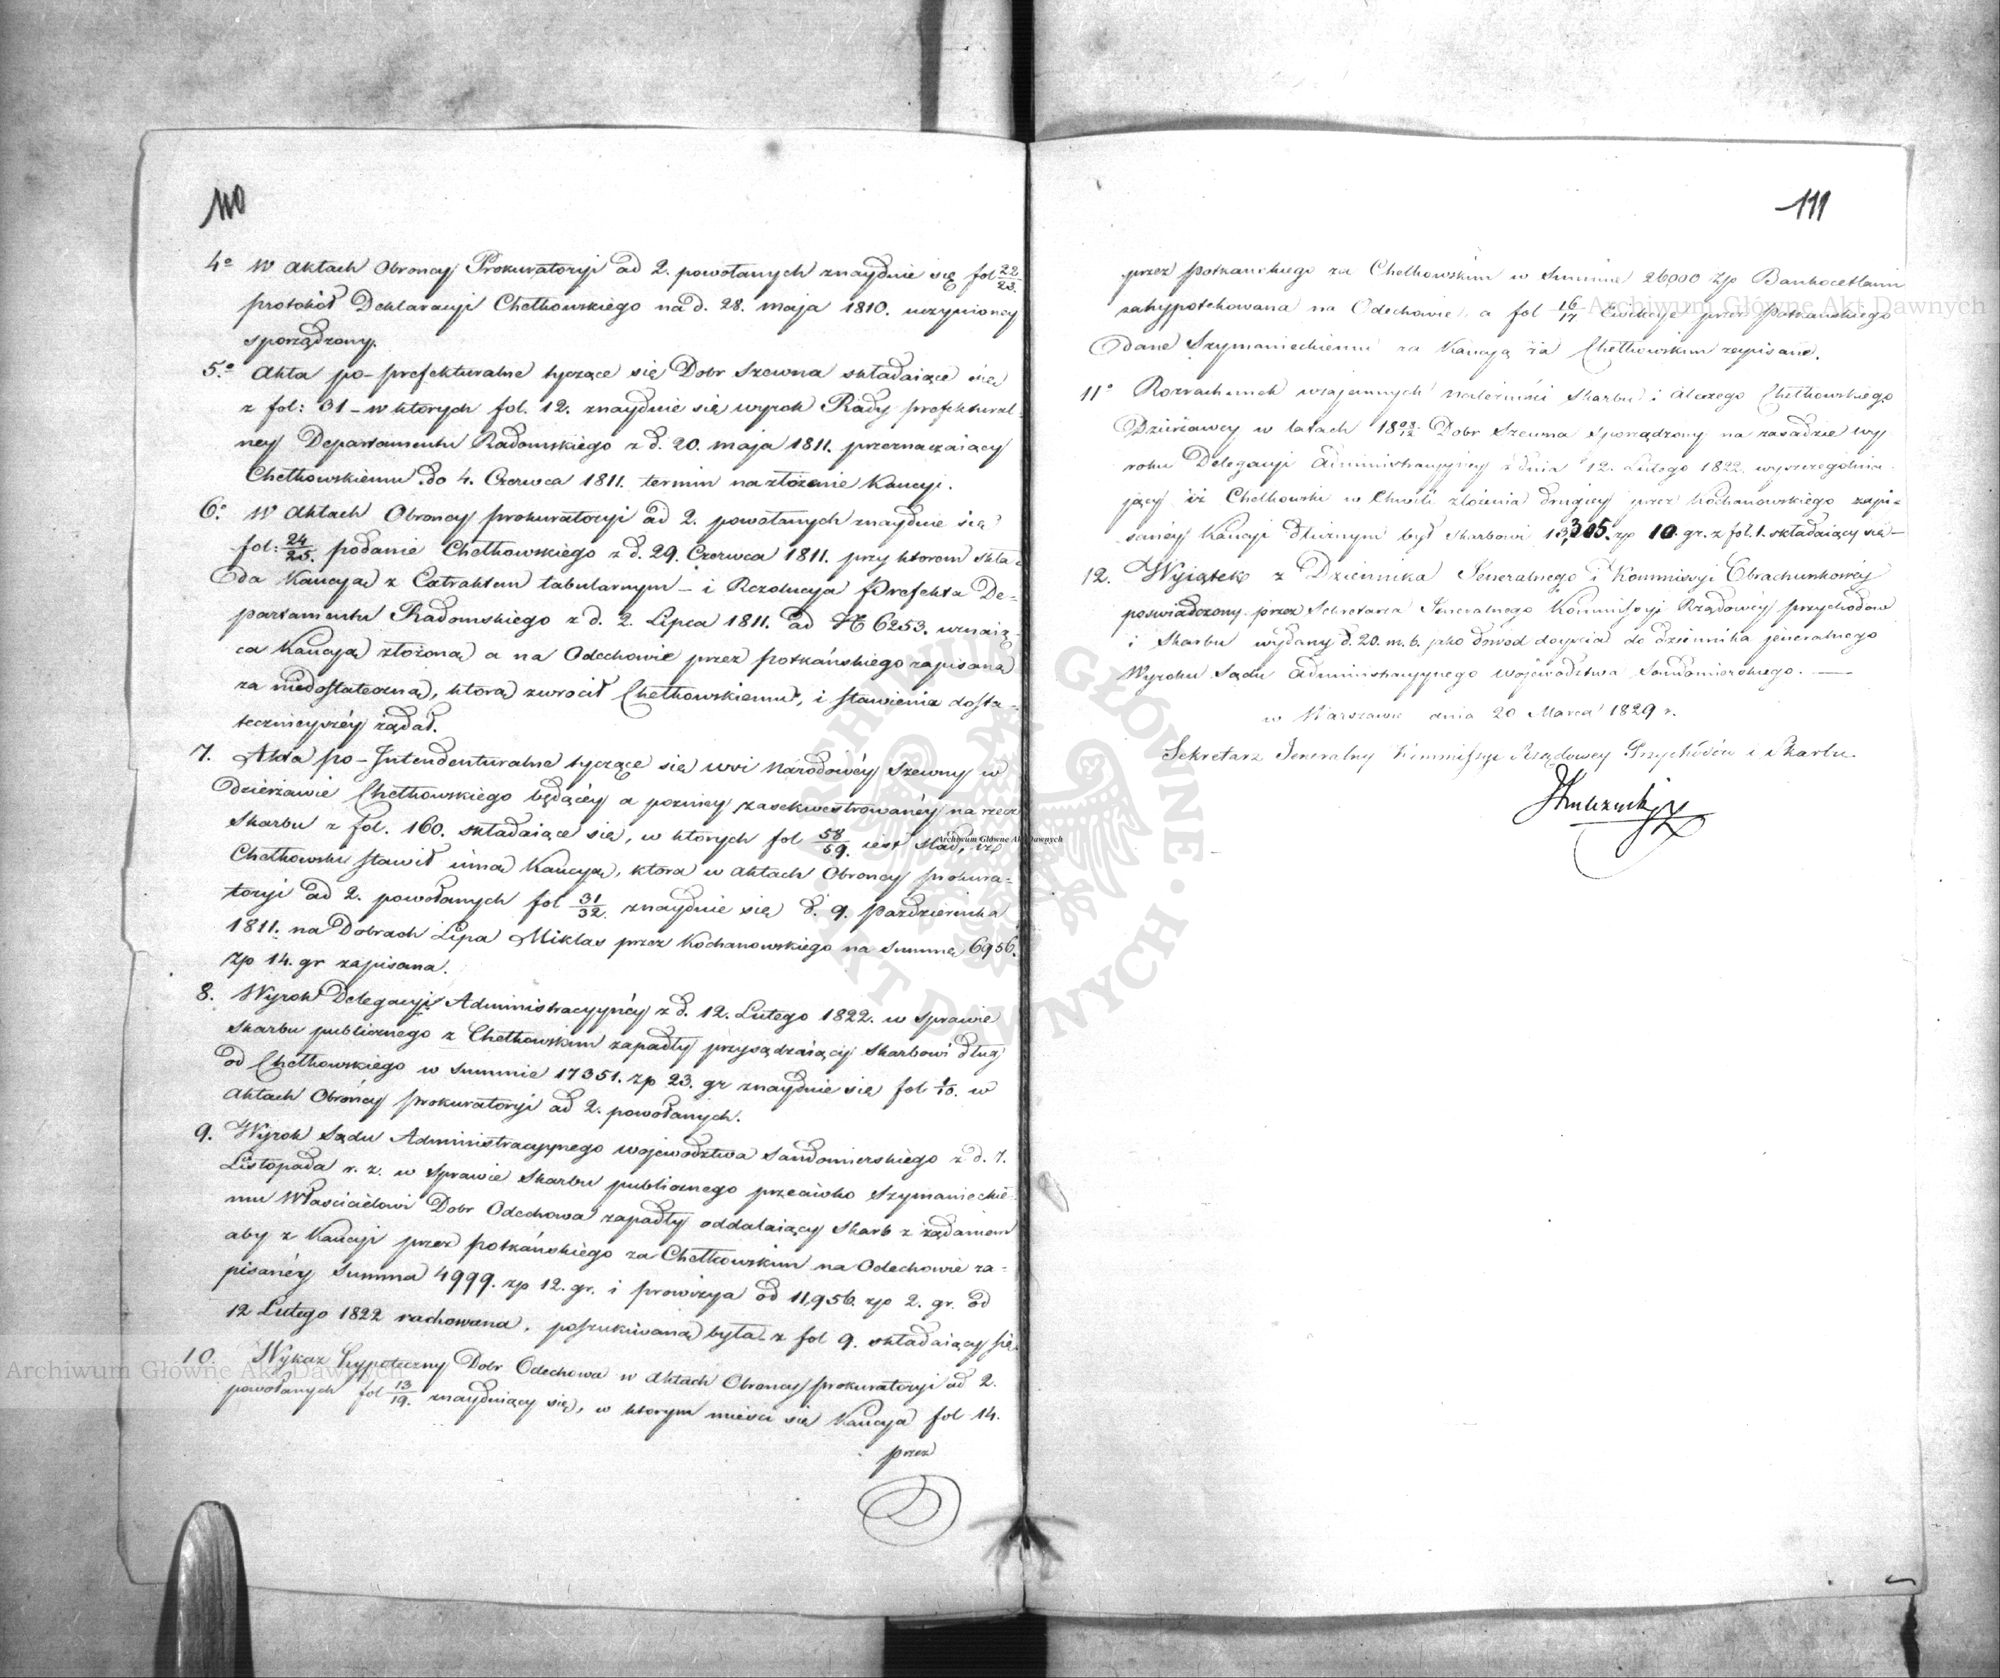 110
4o W Aktach Obroncy Prokuratoryi ad 2. powołanych znayduie się fol 22/23.
protokół Deklaracyi Chełkowskiego na d. 28. maja 1810. uczynioney
sporządzony.
5.o Akta po-prefekturalne tyczące się Dobr Szewna składaiące się
z fol: 31 - w których fol. 12. znayduie się wyrok Rady prefektural-
ney Departamentu Radomskiego z d. 20. maja 1811. przeznaczaiący
Chełkowskiemu do 4. Czerwca 1811. termin na złożenie Kaucyi.
6.o W Aktach Obroncy prokuratoryi ad 2. powołanych znayduie się
fol: 24/25. podanie Chełkowskiego z d. 29. Czerwca 1811. przy ktorom skła-
da Kaucyą z Extraktem tabularnym - i Rezolucya Prefekta De-
partamentu Radomskiego z d. 2. Lipca 1811. ad N 6253. uznaią-
ca Kaucyą złożoną a na Odechowie przez Potkańskiego zapisaną
za niedostateczną, którą zwrócił Chełkowskiemu, i stawienia dosta-
tecznieyszéy żądał.
7. Akta po-Intendenturalne tyczące się wsi Narodowéy Szewny w
Dzierżawie Chełkowskiego będącéy a pozniey zasekwestrowanéy na rzecz
Skarbu z fol. 160. składaiące się, w których fol 58/59. iest ślad, iż
Chełkowski stawił inną Kaucyą, która w Aktach Obroncy prokura-
toryi ad 2. powołanych fol 31/32. znayduie się d. 9. Pazdziernika
1811. na Dobrach Lipa Miklas przez Kochanowskiego na Summę 6956.
zp 14. gr zapisana.
8. Wyrok Delegacyi Administracyynéy z d. 12. Lutego 1822. w sprawie
Skarbu publicznego z Chełkowskim zapadły przysądzaiący Skarbowi dług
od Chełkowskiego w Summie 17351. zp 23. gr znayduie się fol 1/10. w
Aktach Obroncy prokuratoryi ad 2. powołanych.
9. Wyrok Sądu Administracyynego województwa Sandomierskiego z d. 7.
Listopada r. z. w sprawie Skarbu publicznego przeciwko Szymanieckie-
mu Właścicielowi Dobr Odechowa zapadły oddalaiący Skarb z żądaniem
aby z Kaucyi przez Potkańskiego za Chełkowskim na Odechowie za-
pisanéy Summa 4999. zp 12. gr. i prowizya od 11,956 zp 2. gr. od
12 Lutego 1822 rachowana, poszukiwaną była z fol 9. składaiący się.
10. Wykaz hypoteczny Dobr Odechowa w Aktach Obroncy prokuratoryi ad 2.
powołanych fol 13/19. znayduiący się, w ktorym mieści się Kaucya fol 14.
przez
111
przez Potkanskiego za Chełkowskim w Summie 26000 zp Bankocetlami
zahypotekowana na Odechowie, a fol 16/17 Ewikcye przez Potkanskiego
Dane Szymanieckiemu za Kaucyą za Chełkowskim zapisane.
11o Rozrachunek wzajemnych należności Skarbu i Aloizego Chełkowskiego
Dzierżawcy w latach 1808/12 Dobr Szewna sporządzony na zasadzie wy-
roku Delegacyi Administracyyney z dnia 12. Lutego 1822. wyszczególnia-
jący iż Chełkowski w Chwili złożenia drugiey przez Kochanowskiego zapi-
saney Kaucyi dłużnym był Skarbowi 13,305. zp 10. gr. z fol. 1. składaiący się -
12. Wyiątek z Dziennika Jeneralnego i Kommissyi Obrachunkowéy
poswiadczony przez Sekretarza Jeneralnego Kommissyi Rządowéy przychodow
i Skarbu wydany d. 20. m. b. jako dowod doyscia do dziennika jeneralnego
Wyroku Sądu Administracyynego województwa Sandomierskiego. —
w Warszawie dnia 20 Marca 1829 r.
Sekretarz Jeneralny Kommissyi Rządowey Przychodów i Skarbu.
Archiwum Główne Akt Dawnych
Archiwum Główne Akt Dawnych
Archiwum Główne Akt Dawnych
ARCHIWUM GŁÓWNE AKT DAWNYCH